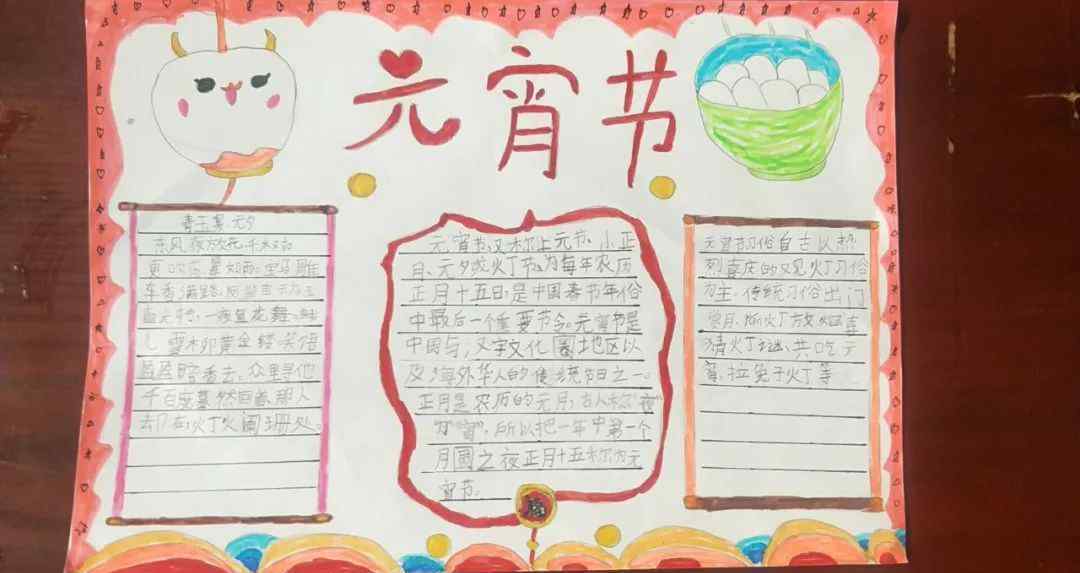 元宵节
青玉案·元夕
东风夜放花千树
更吹落星如雨。宝马雕
车香满路,凤箫声动玉
壶光转,一夜鱼龙舞。蛾
儿雪柳黄金缕笑语
盈盈暗香去。众里寻他
千百度蓦然回首,那人
却在灯火阑珊处。
元宵节,又称上元节、小正
月、元夕或火丁节,为每年农历
正月十五日,是中国春节年俗
中最后一个重要节令。元宵节是
中国与汉字文化圈地区以
及海外华人的传统节日之一。
正月是农历的元月,古人称"夜"
为"宵",所以把一年中第一个
月圆之夜正月十五称为元
宵节。
元宵节习俗自古以热
列喜庆的观灯习俗
为主。传统习俗出门
赏月、燃火丁放烟喜
猜火丁谜、共吃元
宵、拉兔子火丁等